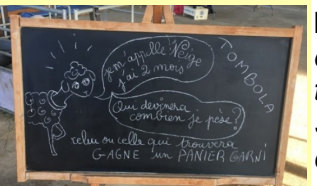 je m'appelle Neige
j'ai 2 mois
TOMBOLA
Qui devinera
combien je pèse?
celui ou celle qui trouvera
GAGNE un PANIER GARNI